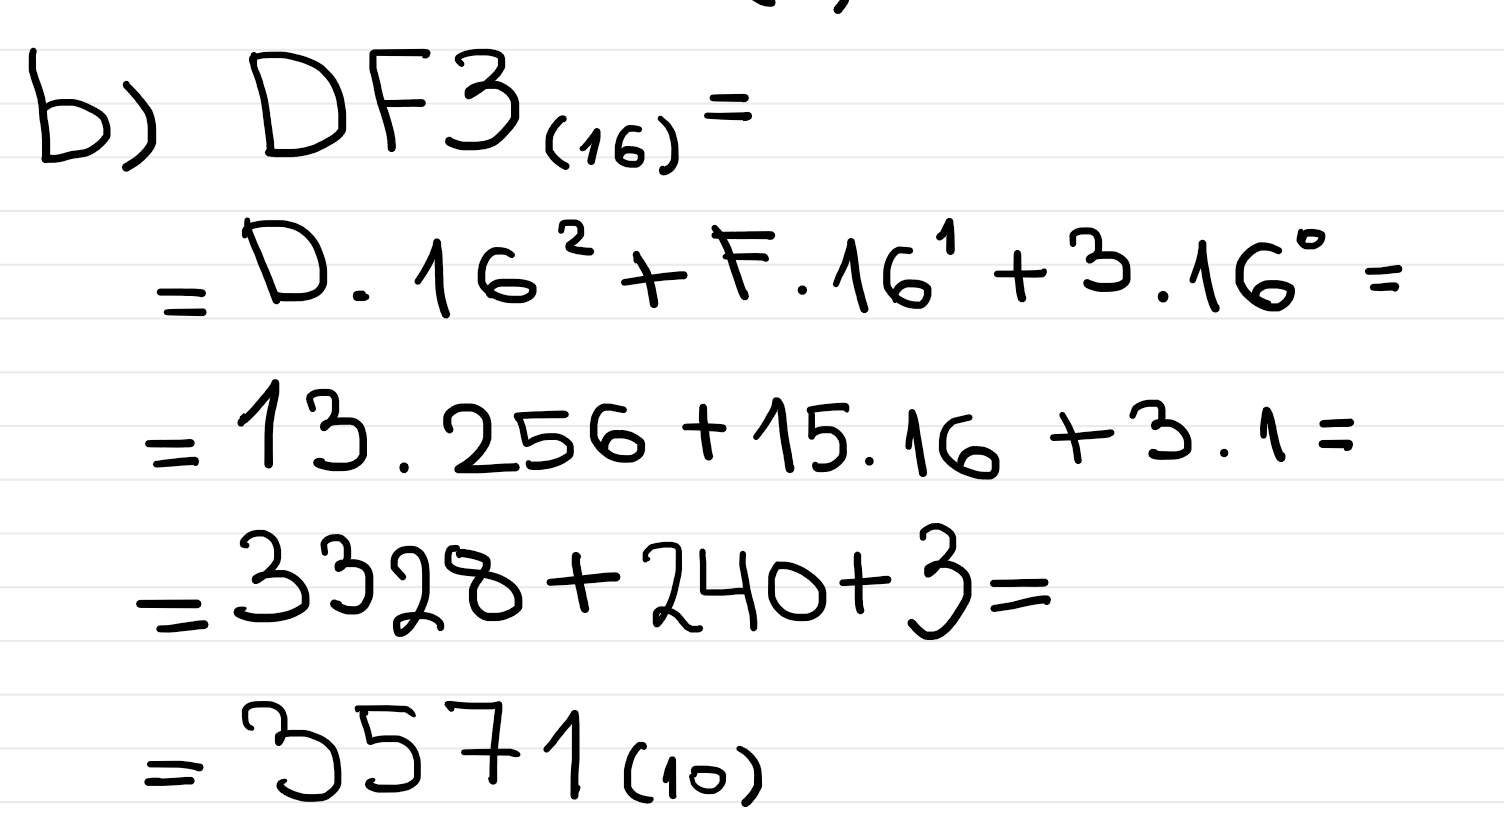 b) DF3₍₁₆₎ =
= D . 16² + F . 16¹ + 3 . 16⁰ =
= 13 . 256 + 15 . 16 + 3 . 1 =
= 3328 + 240 + 3 =
= 3571₍₁₀₎